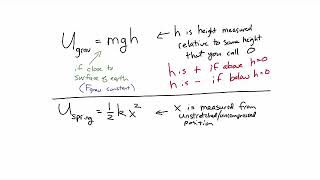 U grav = mgh
← h is height measured
relative to some height
that you call 0
if close to
surface of earth
(Fgrav constant)
h is + if above h=0
h is - if below h=0
U spring = 1/2 k x²
← x is measured from
unstretched/uncompressed
position